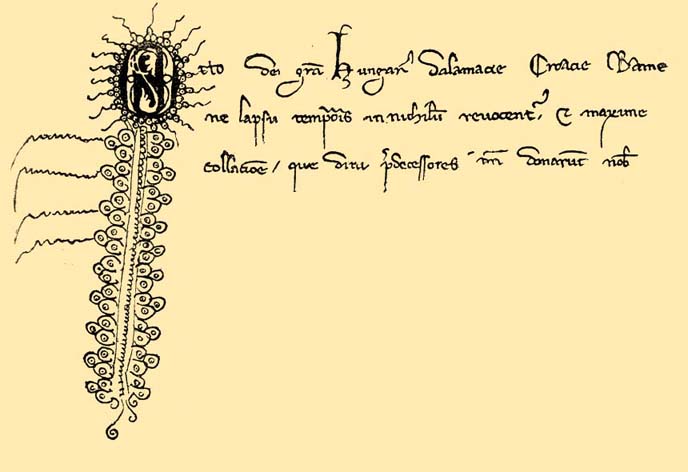 Otto dei gr̄a Hungar᷑ Dalamacie Croacie Rame
ne lapsu tempor̄is in nichilū revocent᷑, ⁊ maxime
collac̄oe, que diui p̄decessores nr̄i donarūt nob̄